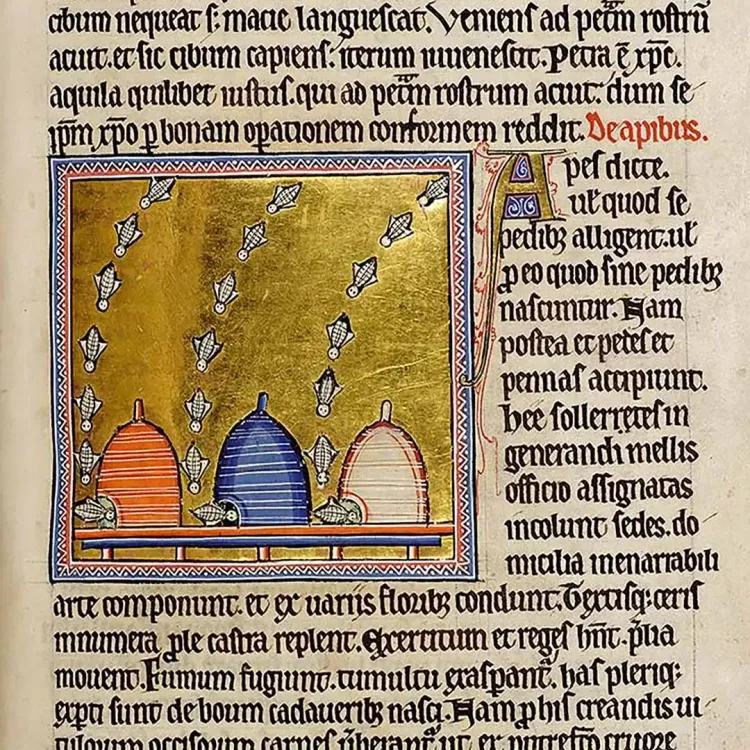 cibum nequeat s; macie languescat. Veniens ad petm rostrū
acuit. et sic cibum capiens; iterum iuuenescit. Petra ē xp̄c.
aquila quilibet iustus. qui ad petm rostrum acuit: dum se
ipm xp̄o p bonam opationem conformem reddit. De apibus.
Apes dicte.
ul' quod se
pedibꝫ alligent. ul'
p eo quod sine pedibꝫ
nascuntur. Nam
postea et pedes et
pennas accipiunt.
hee sollertes in
generandi mellis
officio assignatas
incolunt sedes. do
micilia inenarrabili
arte componunt. et ex uariis floribꝫ condunt. Textisqꝫ ceris
innumera ple castra replent. Exercitum et reges hn̄t. p̄lia
mouent. Fumum fugiunt. tumultu exasperant᷑. has pleriqꝫ
exp̄ti sunt de boum cadaueribꝫ nasci. Nam p his creandis ui
tulorum occisorum carnes ūberant᷑. ut ex putrefacto cruore